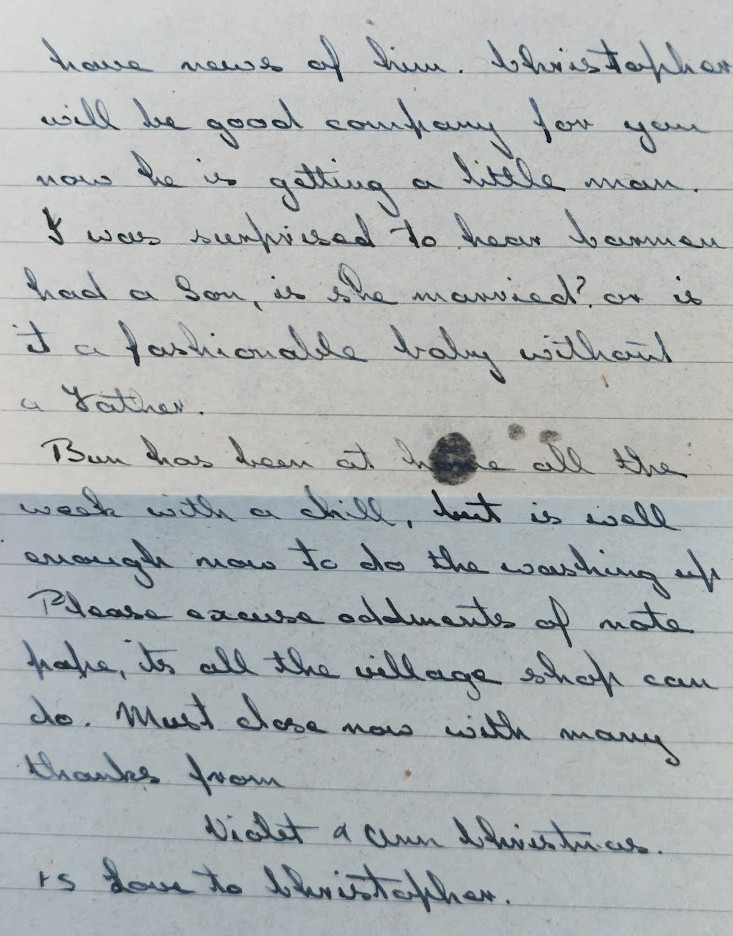 have news of him. Christopher
will be good company for you
now he is getting a little man.
I was surprised to hear Carmen
had a Son, is she married? or is
it a fashionable baby without
a Father.
Bun has been at home all the
week with a chill, but is well
enough now to do the washing up
Please excuse oddments of note
pape, its all the village shop can
do. Must close now with many
thanks from
Violet & Ann Christmas.
rs Love to Christopher.